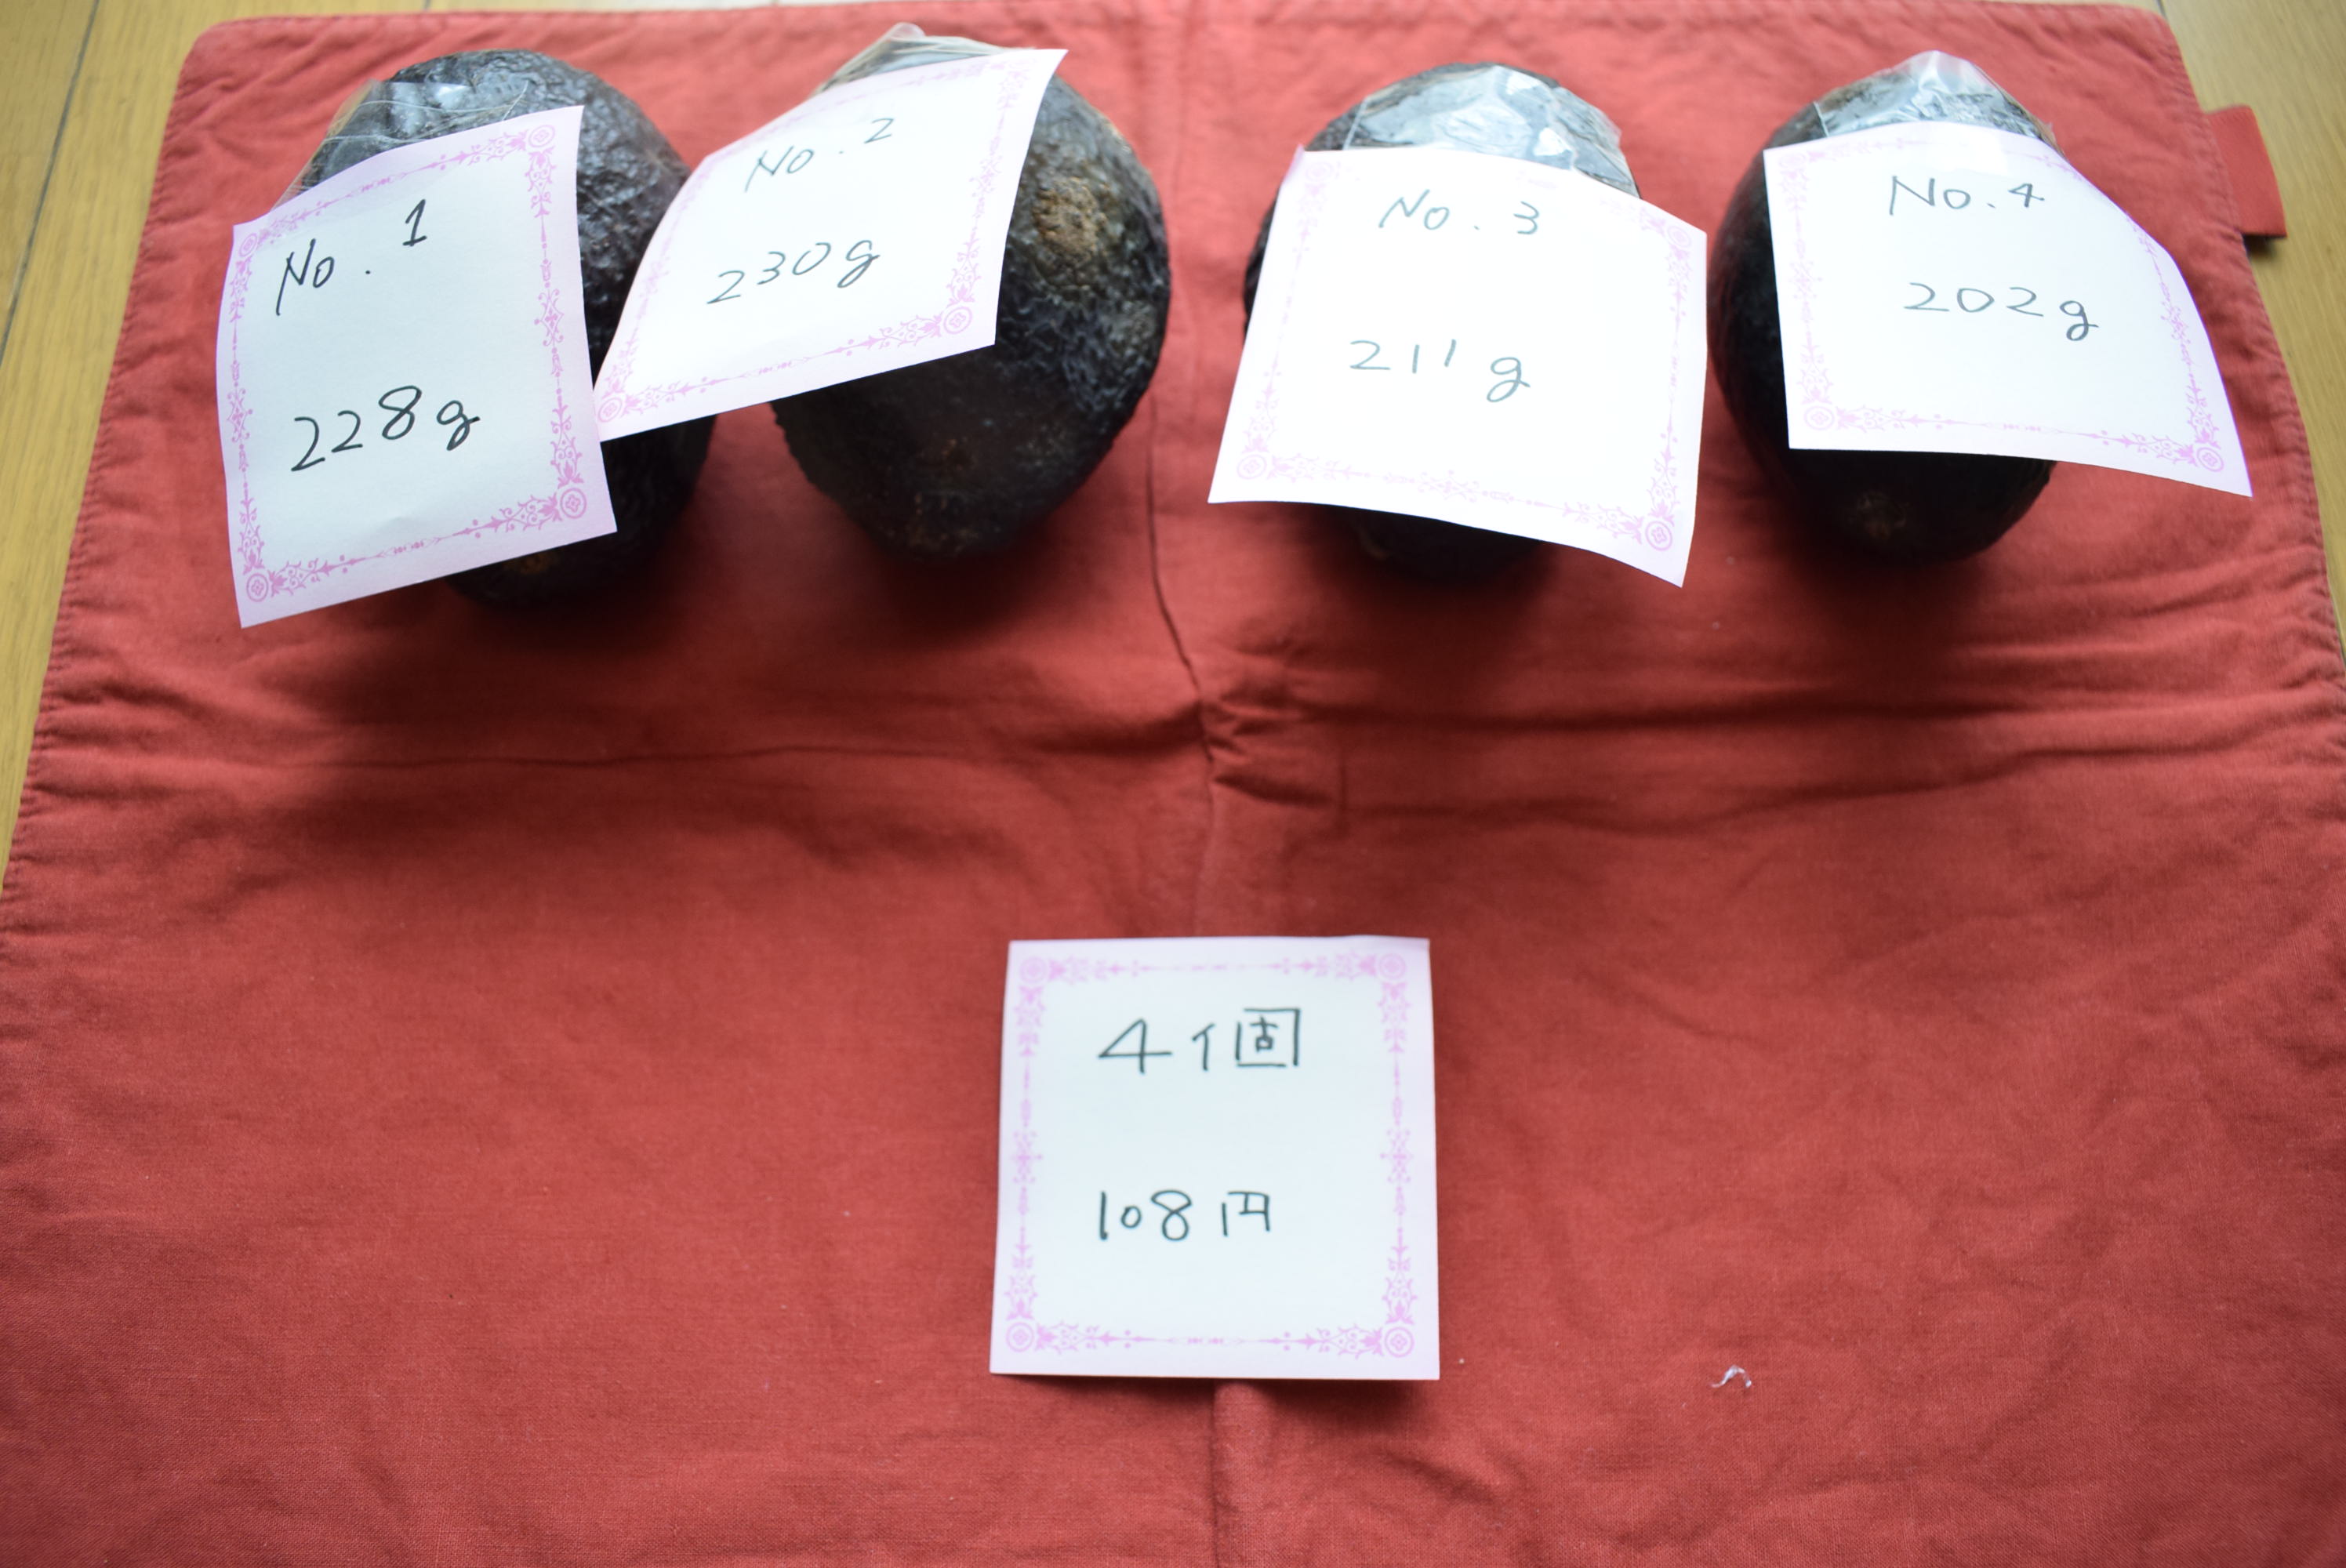 No. 1
228g
No. 2
230g
No. 3
211g
No. 4
202g
4個
108円